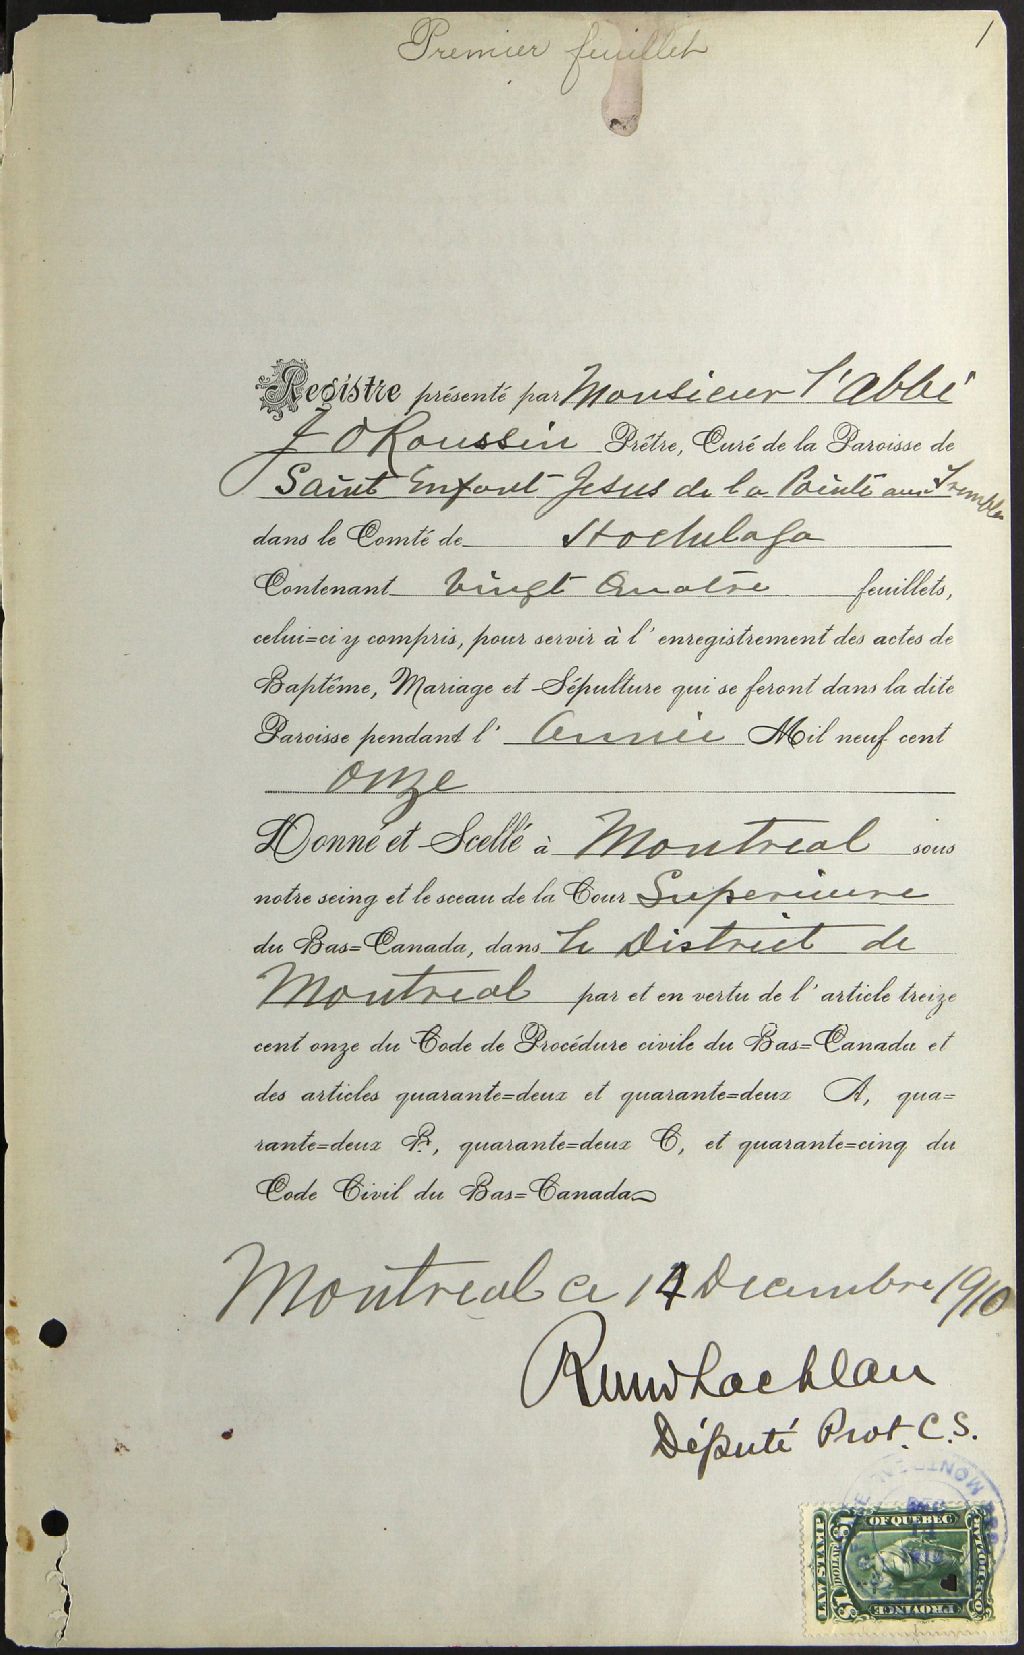 Premier feuillet
1
Registre présenté par Monsieur l'Abbé
J O Roussin Prêtre, Curé de la Paroisse de
Saint Enfant Jesus de la Pointe aux Trembles
dans le Comté de Hochelaga
Contenant Vingt Quatre feuillets,
celui=ci y compris, pour servir à l'enregistrement des actes de
Baptême, Mariage et Sépulture qui se feront dans la dite
Paroisse pendant l'Année Mil neuf cent
onze
Donné et Scellé à Montreal sous
notre seing et le sceau de la Cour Superieure
du Bas=Canada, dans le District de
Montreal par et en vertu de l'article treize
cent onze du Code de Procédure civile du Bas=Canada et
des articles quarante=deux et quarante=deux A, qua=
rante=deux B, quarante=deux C, et quarante=cinq du
Code Civil du Bas=Canada
Montreal ce 14 Decembre 1910
Député Prot. C. S.
LAW STAMP
$1 DOLLAR $1
OF QUEBEC
ONE DOLLAR
PROVINCE
MONTREAL
DEC
14
1910